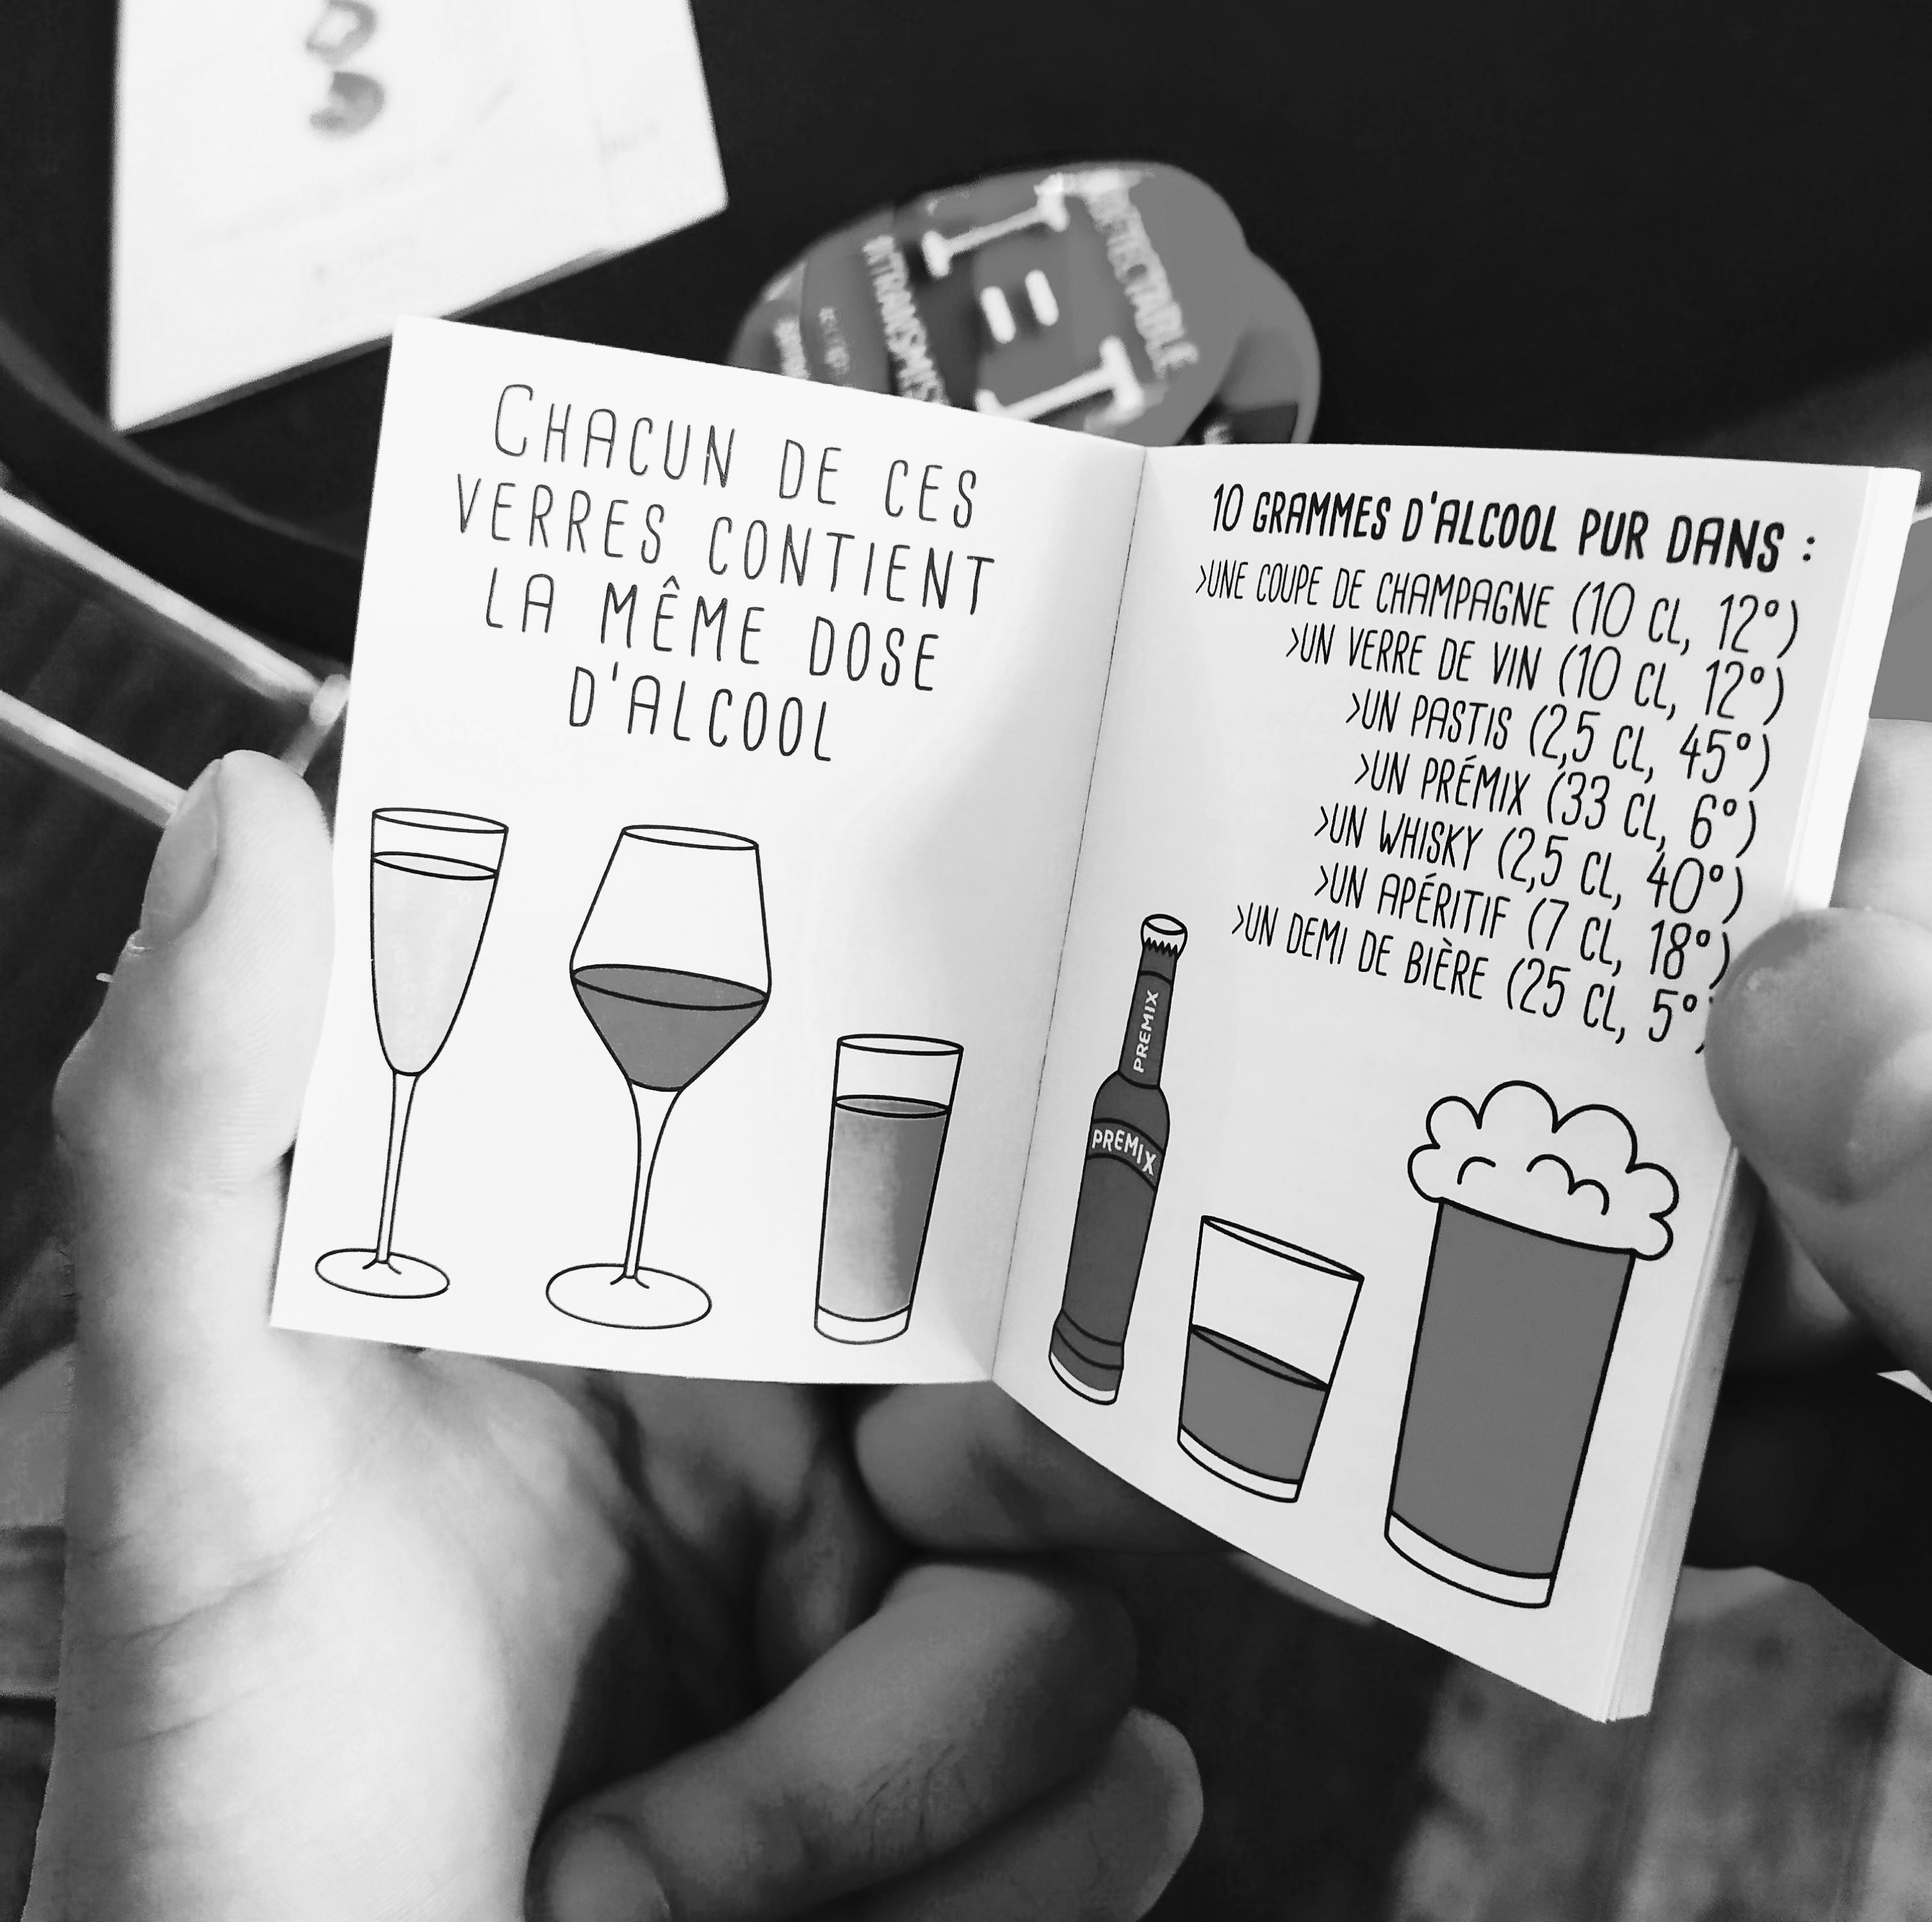 I = I
CHACUN DE CES
VERRES CONTIENT
LA MÊME DOSE
D'ALCOOL
10 GRAMMES D'ALCOOL PUR DANS :
>UNE COUPE DE CHAMPAGNE (10 CL, 12°)
>UN VERRE DE VIN (10 CL, 12°)
>UN PASTIS (2,5 CL, 45°)
>UN PRÉMIX (33 CL, 6°)
>UN WHISKY (2,5 CL, 40°)
>UN APÉRITIF (7 CL, 18°)
>UN DEMI DE BIÈRE (25 CL, 5°)
PREMIX
PREMIX